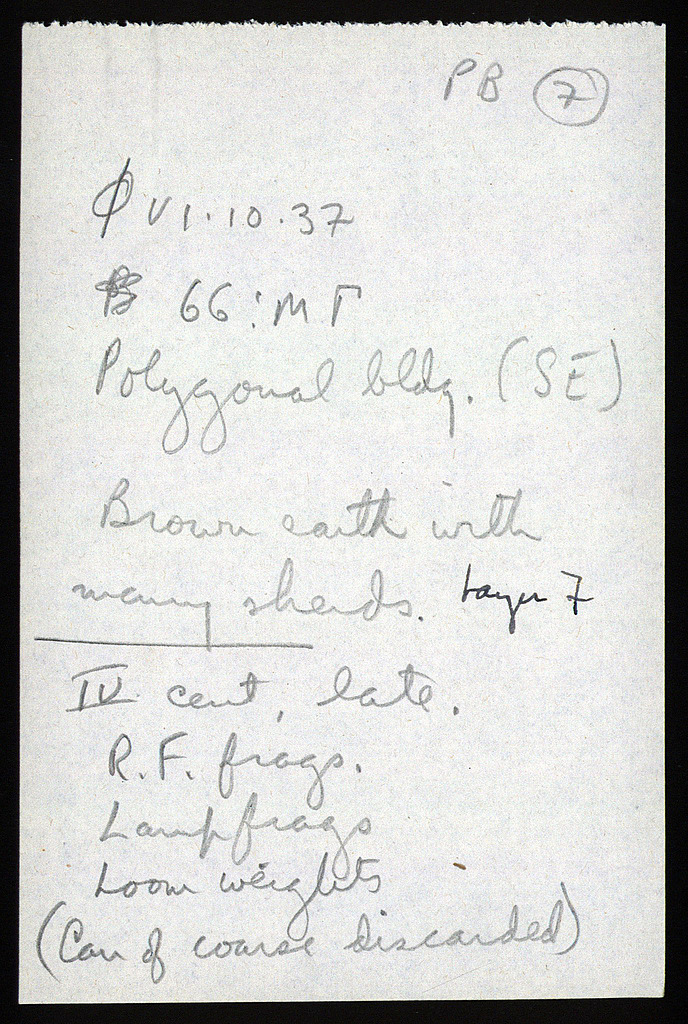 PB 7
φ VI·10·37
66:ΜΓ
Polygonal bldg. (SE)
Brown earth with
many sherds. Layer 7
IV cent, late.
R.F. frags.
Lamp frags
Loom weights
(Can of coarse discarded)